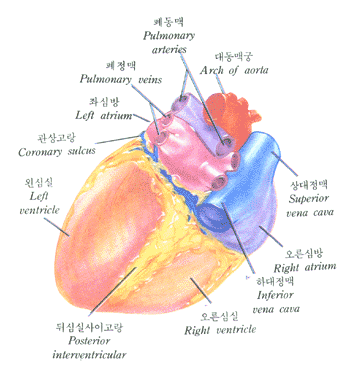 폐동맥
Pulmonary
arteries
대동맥궁
Arch of aorta
폐정맥
Pulmonary veins
좌심방
Left atrium
관상고랑
Coronary sulcus
왼심실
Left
ventricle
상대정맥
Superior
vena cava
오른심방
Right atrium
하대정맥
Inferior
vena cava
오른심실
Right ventricle
뒤심실사이고랑
Posterior
interventricular